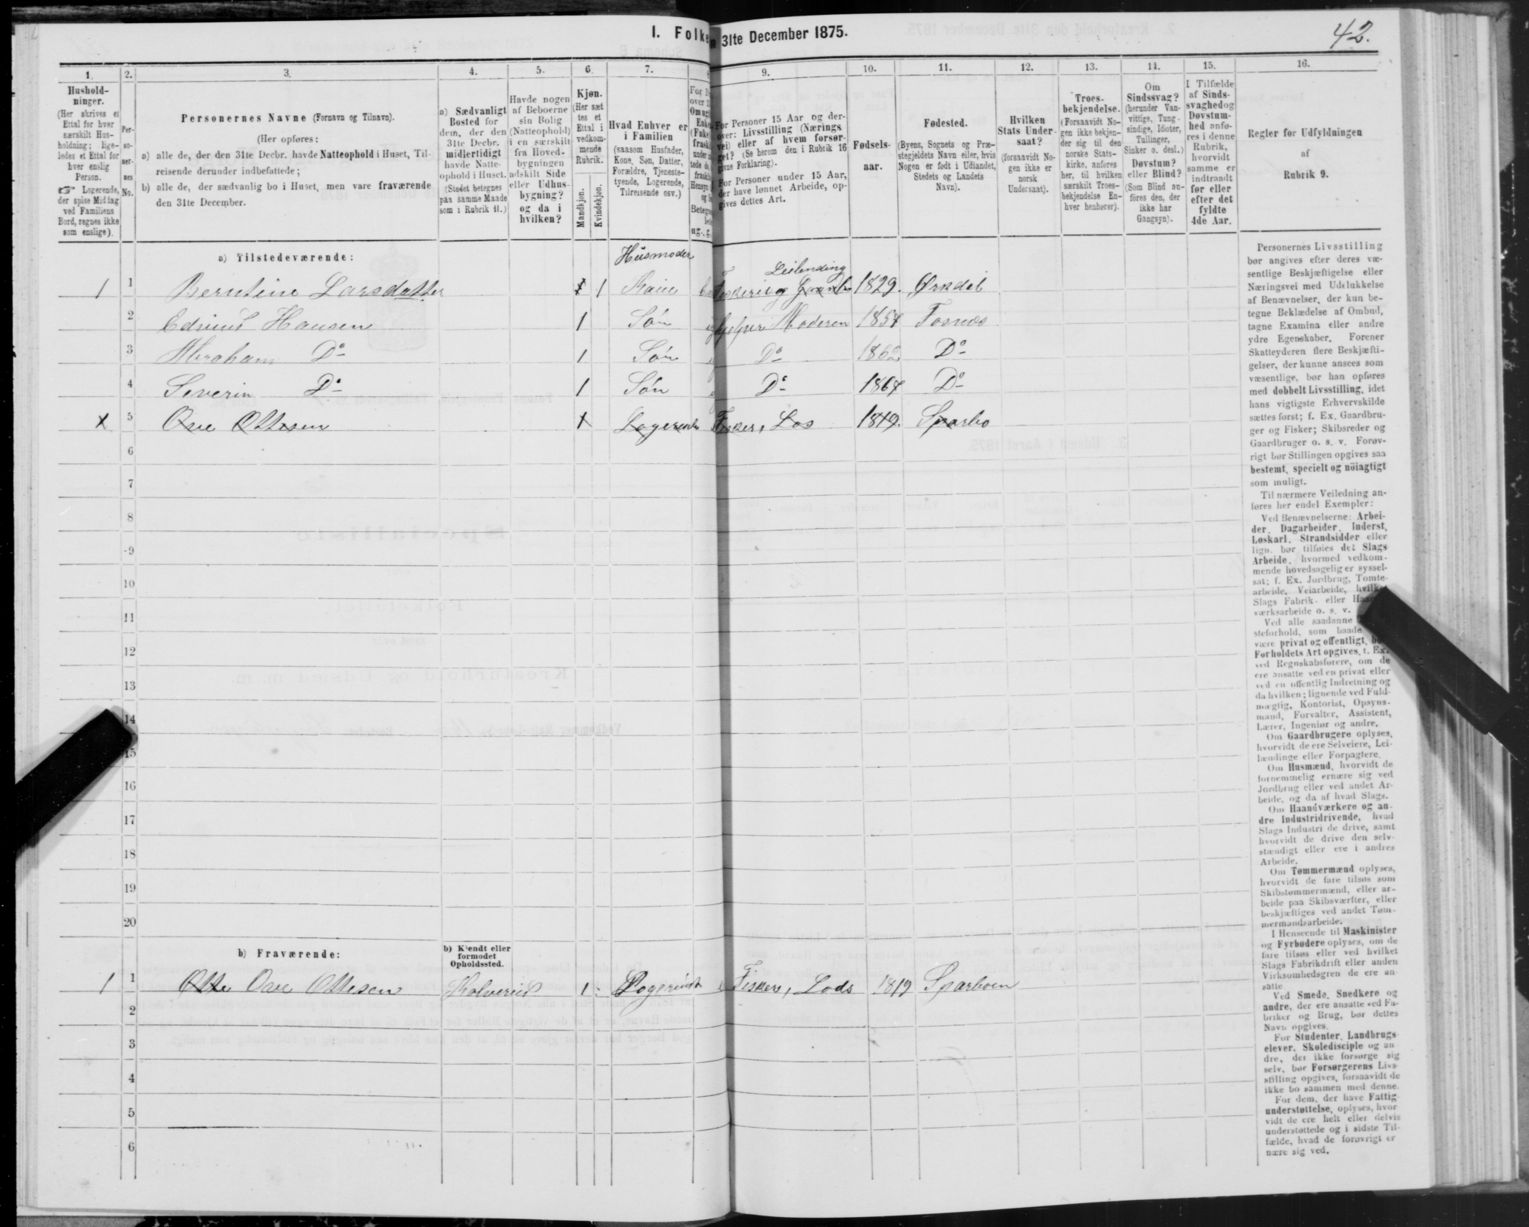 I. Folke
31te December 1875.
42.
1. 2. 3. 4. 5. 6. 7. 8 9. 10. 11. 12. 13. 14. 15. 16.
Hushold-
ninger.
(Her skrives et
Ettal for hver
særskilt Hus-
holdning; lige-
ledes et Ettal for
hver enslig
Person.
☞ Logerende,
der spise Middag
ved Familiens
Bord, regnes ikke
som enslige).
Per-
so-
ner-
nes
No.
Personernes Navne (Fornavn og Tilnavn).
(Her opføres:
a) alle de, der den 31te Decbr. havde Natteophold i Huset, Til-
reisende derunder indbefattede;
b) alle de, der sædvanlig bo i Huset, men vare fraværende
den 31te December.
a) Sædvanligt
Bosted for
dem, der den
31te Decbr.
midlertidigt
havde Natte-
ophold i Huset.
(Stedet betegnes
paa samme Maade
som i Rubrik 11.)
Havde nogen
af Beboerne
sin Bolig
(Natteophold)
i en særskilt
fra Hoved-
bygningen
adskilt Side
eller Udhus-
bygning?
og da i
hvilken?
Kjøn.
(Her sæt
tes et
Ettal i
vedkom-
mende
Rubrik.
Mandkjøn.
Kvindekjøn.
Hvad Enhver er
i Familien
(saasom Husfader,
Kone, Søn, Datter,
Forældre, Tjeneste-
tyende, Logerende,
Tilreisende osv.)
For Personer 15 Aar og der-
over: Livsstilling (Nærings
vei) eller af hvem forsør-
get? (Se herom den i Rubrik 16
givne Forklaring).
For Personer under 15 Aar,
der have lønnet Arbeide, op-
gives dettes Art.
Fødsels-
aar.
Fødested.
(Byens, Sognets og Præ-
stegjeldets Navn eller, hvis
Nogen er født i Udlandet,
Stedets og Landets
Navn).
Hvilken
Stats Under-
saat?
(forsaavidt No-
gen ikke er
norsk
Undersaat).
Troes-
bekjendelse.
(Forsaavidt No-
gen ikke bekjen-
der sig til den
norske Stats-
kirke, anføres
her, til hvilken
særskilt Troes-
bekjendelse En-
hver henhører).
Om
Sindssvag?
(herunder Van-
vittige, Tung-
sindige, Idioter,
Tullinger,
Sinker o. desl.)
Døvstum?
eller Blind?
(Som Blind an-
føres den, der
ikke har
Gangsyn).
I Tilfælde
af Sinds-
svaghed og
Døvstum-
hed anfø-
res i denne
Rubrik,
hvorvidt
samme er
indtraadt
før eller
efter det
fyldte
4de Aar.
Regler for Udfyldningen
af
Rubrik 9.
a) Tilstedeværende:
Husmoder
Leilending
1 1 Berntine Larsdatter 1 Kone Fiskeri og 1829. Ørkdal
2 Edsius Hansen 1 Søn hjelper Moderen 1857 Fosnæs
3 Abraham Do 1 Søn Do 1862 Do
4 Severin Do 1 Søn Do 1867 Do
x 5 Ove Ottesen x Logerende Fisker, Los 1819. Sparbo
6
7
8
9
10
11
12
13
14
15
16
17
18
19
20
b) Fraværende:
b) Kjendt eller
formodet
Opholdssted.
1 1 Otte Ove Ottesen Kalvereid 1 Logerende Fisker, Lods 1819 Sparboen
2
3
4
5
6
Personernes Livsstilling
bør angives efter deres væ-
sentlige Beskjæftigelse eller
Næringsvei med Udelukkelse
af Benævnelser, der kun be-
tegne Beklædelse af Ombud,
tagne Examina eller andre
ydre Egenskaber. Forener
Skatteyderen flere Beskjæfti-
gelser, der kunne ansees som
væsentlige, bør han opføres
med dobbelt Livsstilling, idet
hans vigtigste Erhvervskilde
sættes først; f. Ex. Gaardbru-
ger og Fisker; Skibsreder og
Gaardbruger o. s. v. Forøv-
rigt bør Stillingen opgives saa
bestemt, specielt og nøiagtigt
som muligt.
Til nærmere Veiledning an-
føres her endel Exempler:
Ved Benævnelserne: Arbei-
der, Dagarbeider, Inderst,
Løskarl, Strandsidder eller
lign. bør tilføies det Slags
Arbeide, hvormed vedkom-
mende hovedsagelig er syssel-
sat; f. Ex. Jordbrug, Tomte-
arbeide, Veiarbeide, hvilket
Slags Fabrik- eller
værksarbeide o. s. v.
Ved alle saadanne
steforhold, som baade
være privat og offentligt, bør
Forholdets Art opgives, f. Ex.
ved Regnskabsførere, om de
ere ansatte ved en privat eller
ved en offentlig Indretning og
da hvilken; lignende ved Fuld-
mægtig, Kontorist, Opsyns-
mand, Forvalter, Assistent,
Lærer, Ingeniør og andre.
Om Gaardbrugere oplyses,
hvorvidt de ere Selveiere, Lei-
lændinge eller Forpagtere.
Om Husmænd, hvorvidt de
fornemmelig ernære sig ved
Jordbrug eller ved andet Ar-
beide, og da af hvad Slags.
Om Haandværkere og an-
dre Industridrivende, hvad
Slags Industri de drive, samt
hvorvidt de drive den selv-
stændigt eller ere i andres
Arbeide.
Om Tømmermænd oplyses,
hvorvidt de fare tilsøs som
Skibstømmermænd, eller ar-
beide paa Skibsværfter, eller
beskjæftiges ved andet Tøm-
mermandsarbeide.
I Henseende til Maskinister
og Fyrbødere oplyses, om de
fare tilsøs eller ved hvilket
Slags Fabrikdrift eller anden
Virksomhedsgren de ere an-
satte.
Ved Smede, Snedkere og
andre, der ere ansatte ved Fa-
briker og Brug, bør dettes
Navn opgives.
For Studenter, Landbrugs-
elever, Skoledisciple og an
dre, der ikke forsørge sig
selv, bør Forsørgerens Livs-
stilling opgives, forsaavidt de
ikke bo sammen med denne.
For dem, der have Fattig-
understøttelse, oplyses, hvor
vidt de ere helt eller delvis
understøttede og i sidste Til-
fælde, hvad de forøvrigt er
nære sig ved.